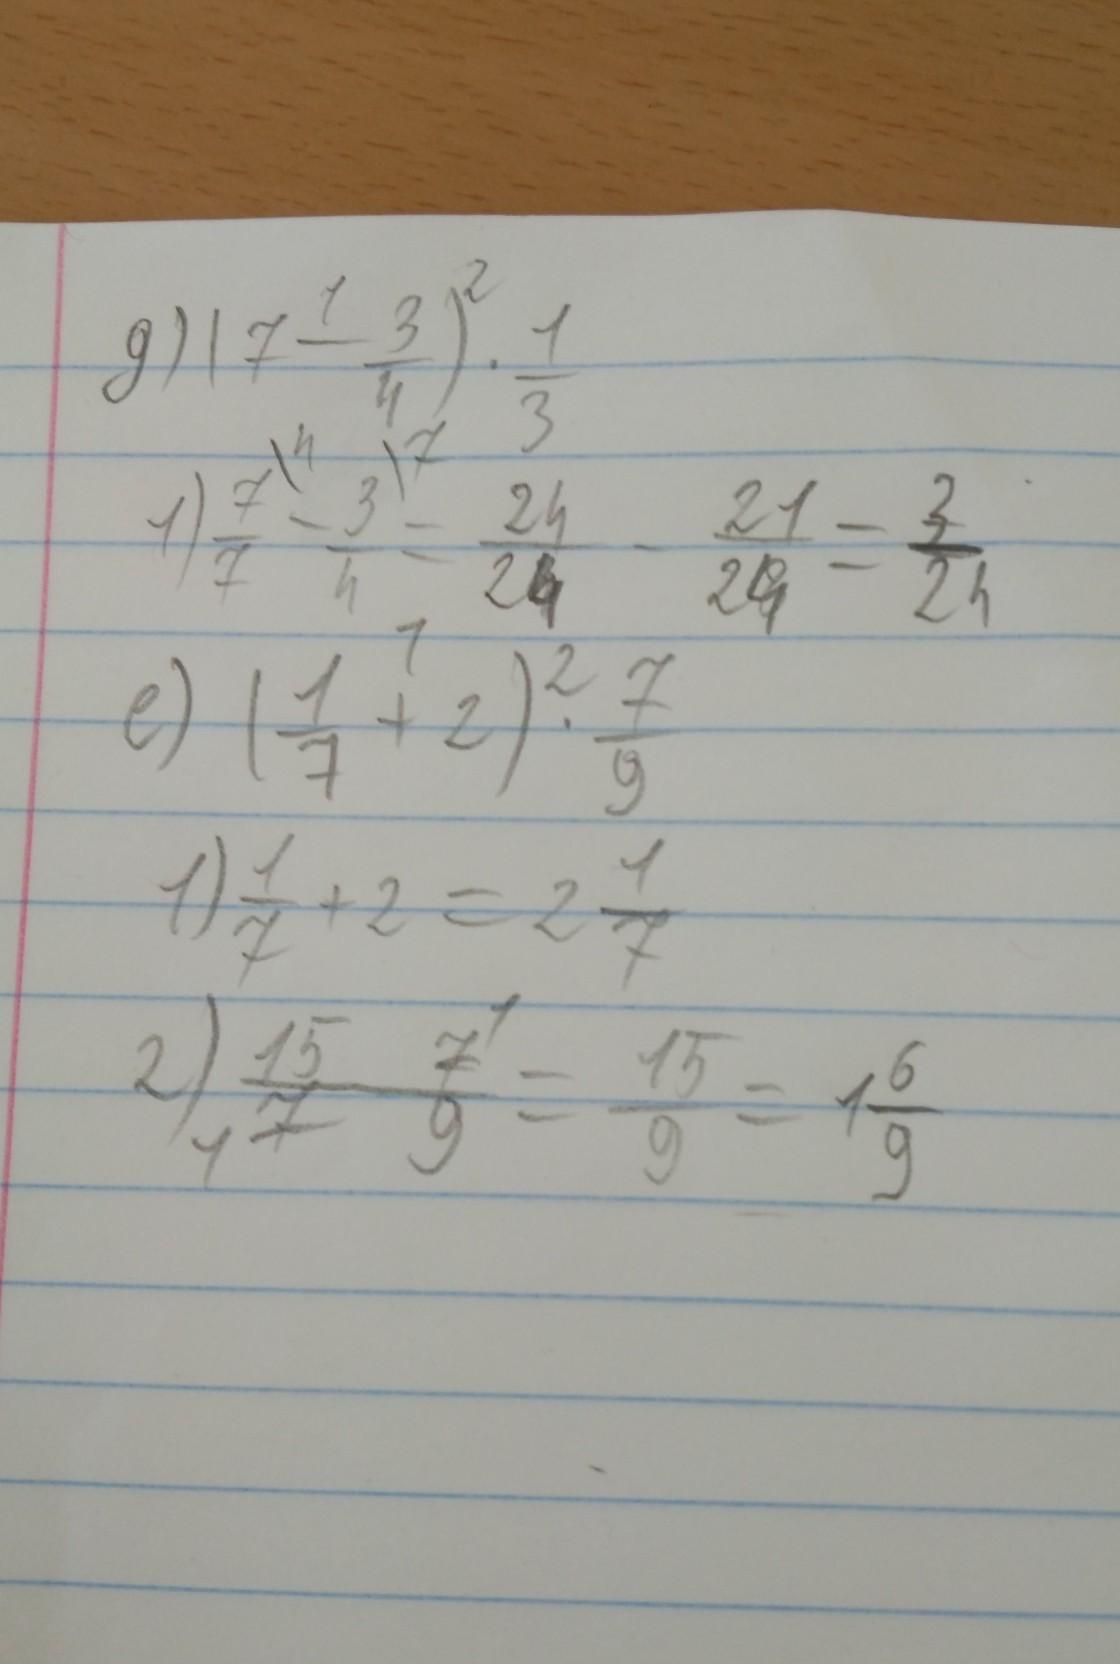 д) (7 - 3/4)² · 1/3
1) 7/7\4 - 3/4\7 = 24/24 - 21/24 = 3/24
е) (1/7 + 2)² · 7/9
1) 1/7 + 2 = 2 1/7
2) 15/7 7/9 = 15/9 = 1 6/9